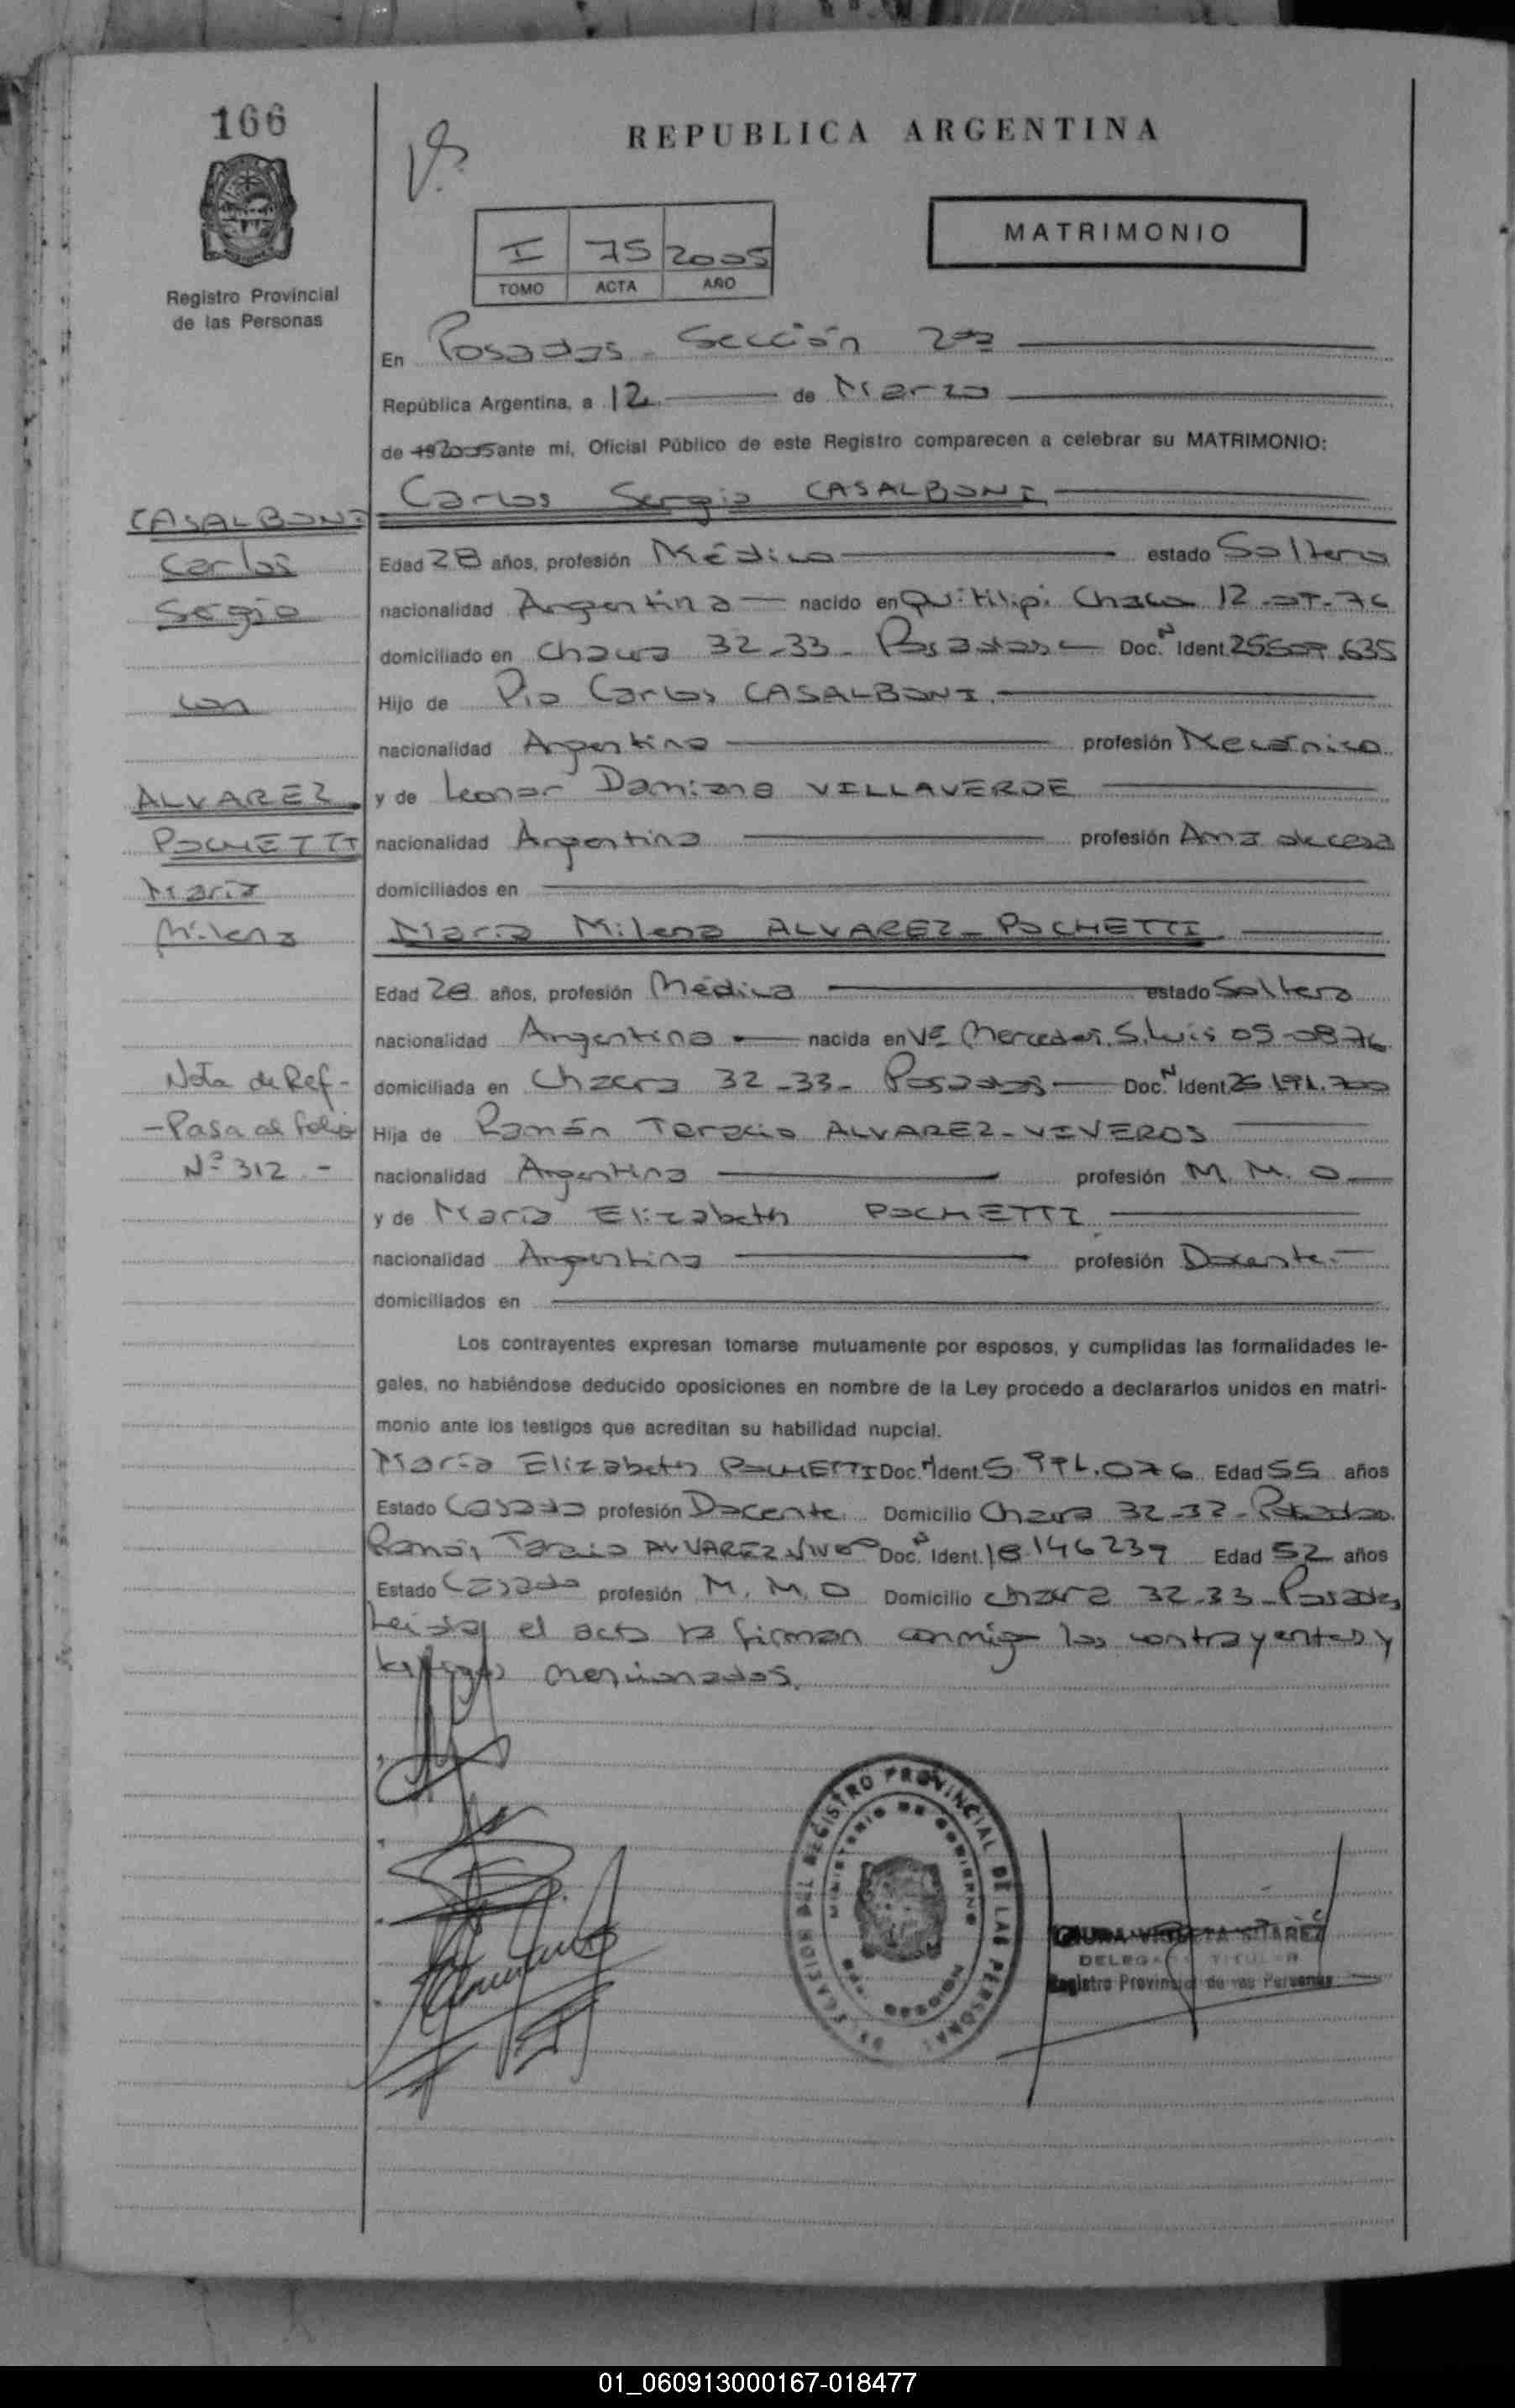 166
REPUBLICA ARGENTINA
I 75 2005
TOMO ACTA AÑO
MATRIMONIO
Registro Provincial
de las Personas
En Posadas - Sección 2da
República Argentina, a 12 de Marzo
de 19 2005 ante mi, Oficial Público de este Registro comparecen a celebrar su MATRIMONIO:
Carlos Sergio CASALBONI
CASALBONI
Carlos
Sergio
con
ALVAREZ
POCHETTI
María
Milena
Nota de Ref-
-Pasa al folio
Nº 312 -
Edad 28 años, profesión Médico estado Soltero
nacionalidad Argentina nacido en Quitilipi Chaco 12-07-76
domiciliado en Chacra 32-33- Posadas Doc. N Ident. 25.507.635
Hijo de Pio Carlos CASALBONI
nacionalidad Argentina profesión Mecánico
y de Leonor Damiana VILLAVERDE
nacionalidad Argentina profesión Ama de casa
domiciliados en
María Milena ALVAREZ - POCHETTI
Edad 28 años, profesión Médica estado Soltera
nacionalidad Argentina nacida en Vª Mercedes. S. Luis 05-08-76
domiciliada en Chacra 32-33- Posadas Doc. N Ident. 25.191.700
Hija de Ramón ALVAREZ - VIVEROS
nacionalidad Argentina profesión M. M. O
y de María Elizabeth POCHETTI
nacionalidad Argentina profesión Docente.
domiciliados en
Los contrayentes expresan tomarse mutuamente por esposos, y cumplidas las formalidades le-
gales, no habiéndose deducido oposiciones en nombre de la Ley procedo a declararlos unidos en matri-
monio ante los testigos que acreditan su habilidad nupcial.
María Elizabeth POCHETTI Doc. N Ident. 5.991.076 Edad 55 años
Estado Casada profesión Docente Domicilio Chacra 32-33- Posadas
Ramón ALVAREZ Doc. N Ident. 18.146239 Edad 52 años
Estado Casado profesión M. M. O Domicilio chacra 32-33- Posadas
Leida el acta la firman conmigo los contrayentes y
testigos mencionados.
REGISTRO PROVINCIAL DE LAS PERSONAS
MINISTERIO DE GOBIERNO
MISIONES
SUAREZ
DELEGADA TITULAR
Registro Provincial de las Personas
01_060913000167-018477